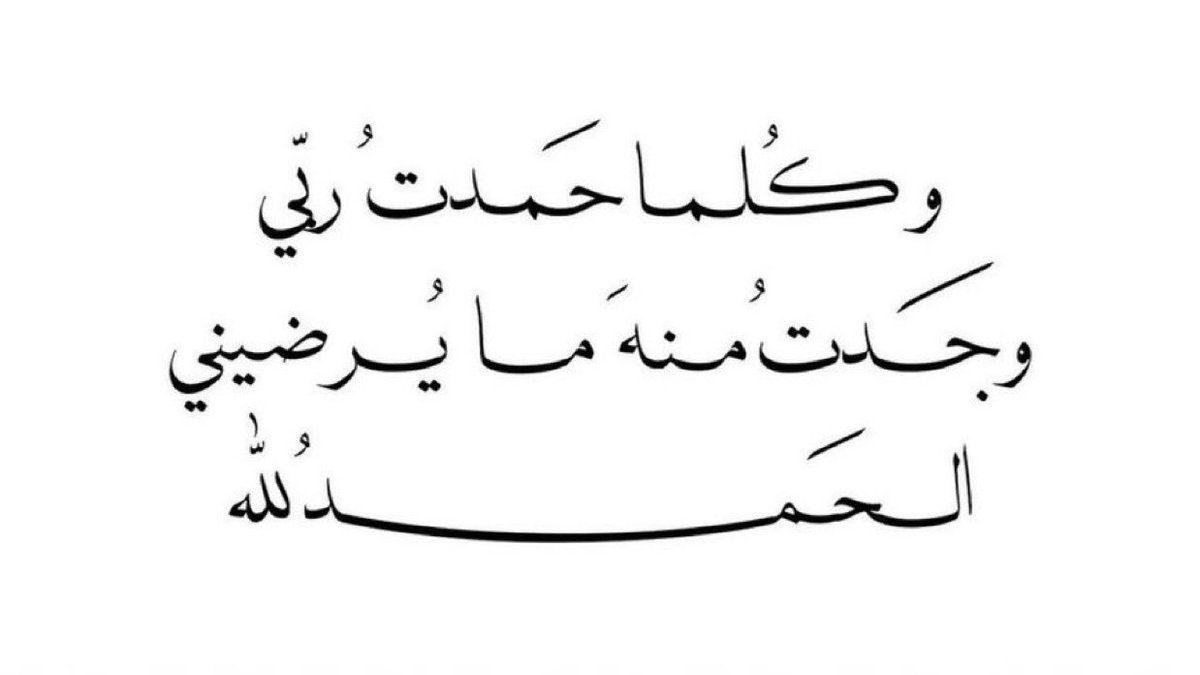 وكُلما حَمدتُ ربّي
وجَدتُ منهَ ما يُرضيني
الحَمدُ للّٰه